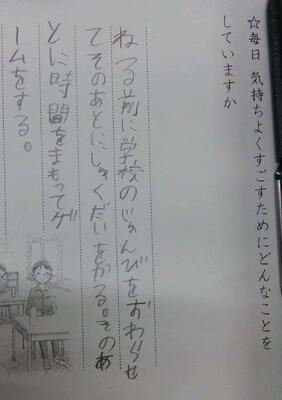 ☆毎日 気持ちよくすごすためにどんなことを
していますか
ねる前に学校のじゅんびをおわらせ
てそのあとにしゅくだいをかる。そのあ
とに時間をまもってゲ
ームをする。